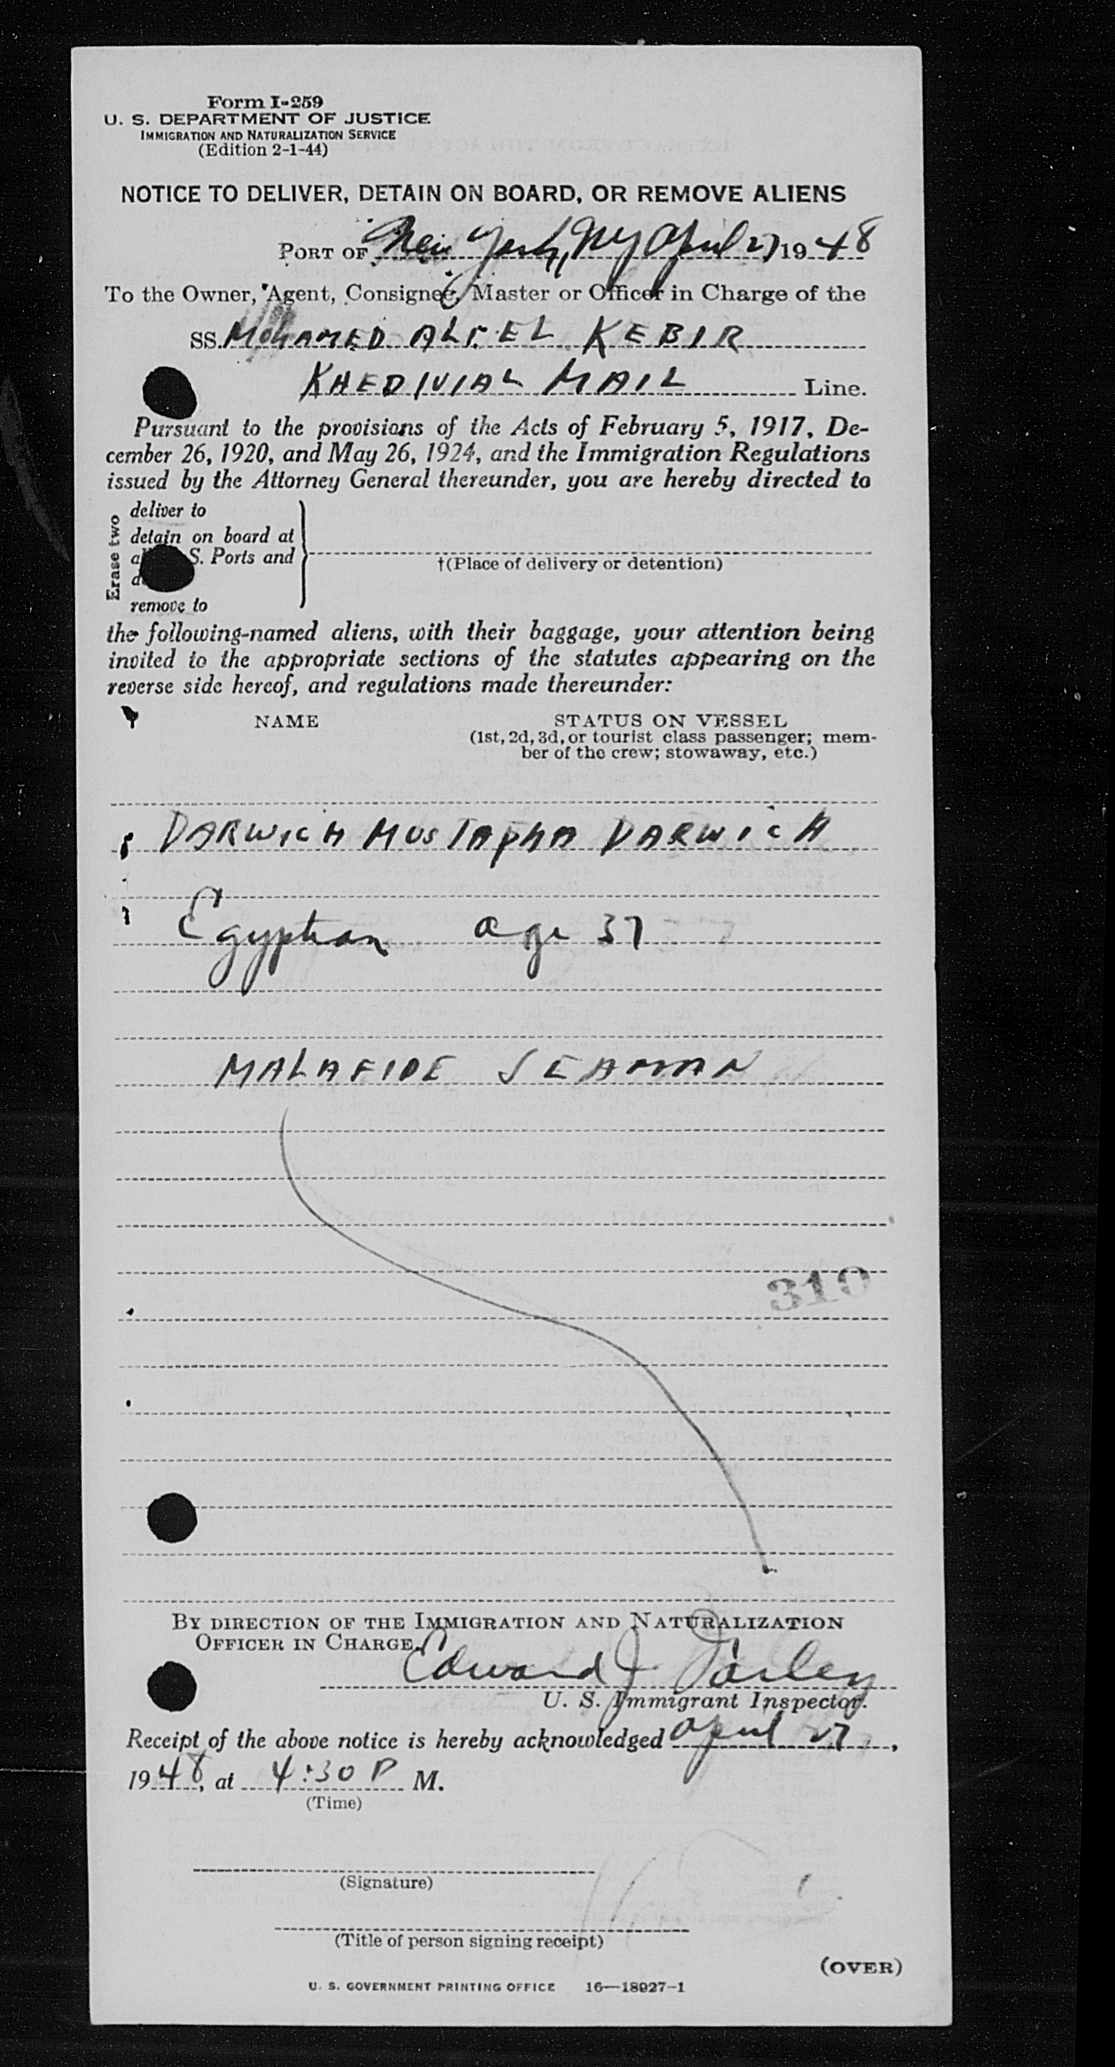 Form I-259
U. S. DEPARTMENT OF JUSTICE
IMMIGRATION AND NATURALIZATION SERVICE
(Edition 2-1-44)
NOTICE TO DELIVER, DETAIN ON BOARD, OR REMOVE ALIENS
PORT OF New York, NY April 27 1948
To the Owner, Agent, Consignee, Master or Officer in Charge of the
SS. MOHAMED ALI EL KEBIR
KHEDIVIAL MAIL Line.
Pursuant to the provisions of the Acts of February 5, 1917, De-
cember 26, 1920, and May 26, 1924, and the Immigration Regulations
issued by the Attorney General thereunder, you are hereby directed to
Erase two
deliver to
detain on board at
S. Ports and
remove to
†(Place of delivery or detention)
the following-named aliens, with their baggage, your attention being
invited to the appropriate sections of the statutes appearing on the
reverse side hereof, and regulations made thereunder:
NAME STATUS ON VESSEL
(1st, 2d, 3d, or tourist class passenger; mem-
ber of the crew; stowaway, etc.)
DARWICH MUSTAPHA DARWICH
Egyptian age 37
MALAFIDE SEAMAN
310
BY DIRECTION OF THE IMMIGRATION AND NATURALIZATION
OFFICER IN CHARGE.
Edward J. Farley
U. S. Immigrant Inspector.
Receipt of the above notice is hereby acknowledged April 27,
1948, at 4:30 P M.
(Time)
(Signature)
(Title of person signing receipt)
(OVER)
U. S. GOVERNMENT PRINTING OFFICE 16—18927-1